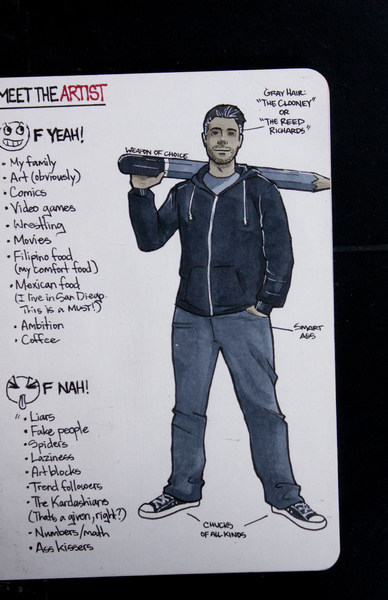 MEET THE ARTIST
F YEAH!
• My family
• Art (obviously)
• Comics
• Video games
• Wrestling
• Movies
• Filipino food
(my comfort food)
• Mexican food
(I live in San Diego.
This is a MUST!)
• Ambition
• Coffee
F NAH!
• Liars
• Fake people
• Spiders
• Laziness
• Art blocks
• Trend followers
• The Kardashians
(That's a given, right?)
• Numbers/math
• Ass kissers
GRAY HAIR:
"THE CLOONEY"
OR
"THE REED
RICHARDS"
WEAPON OF CHOICE
SMART
ASS
CHUCKS
OF ALL KINDS